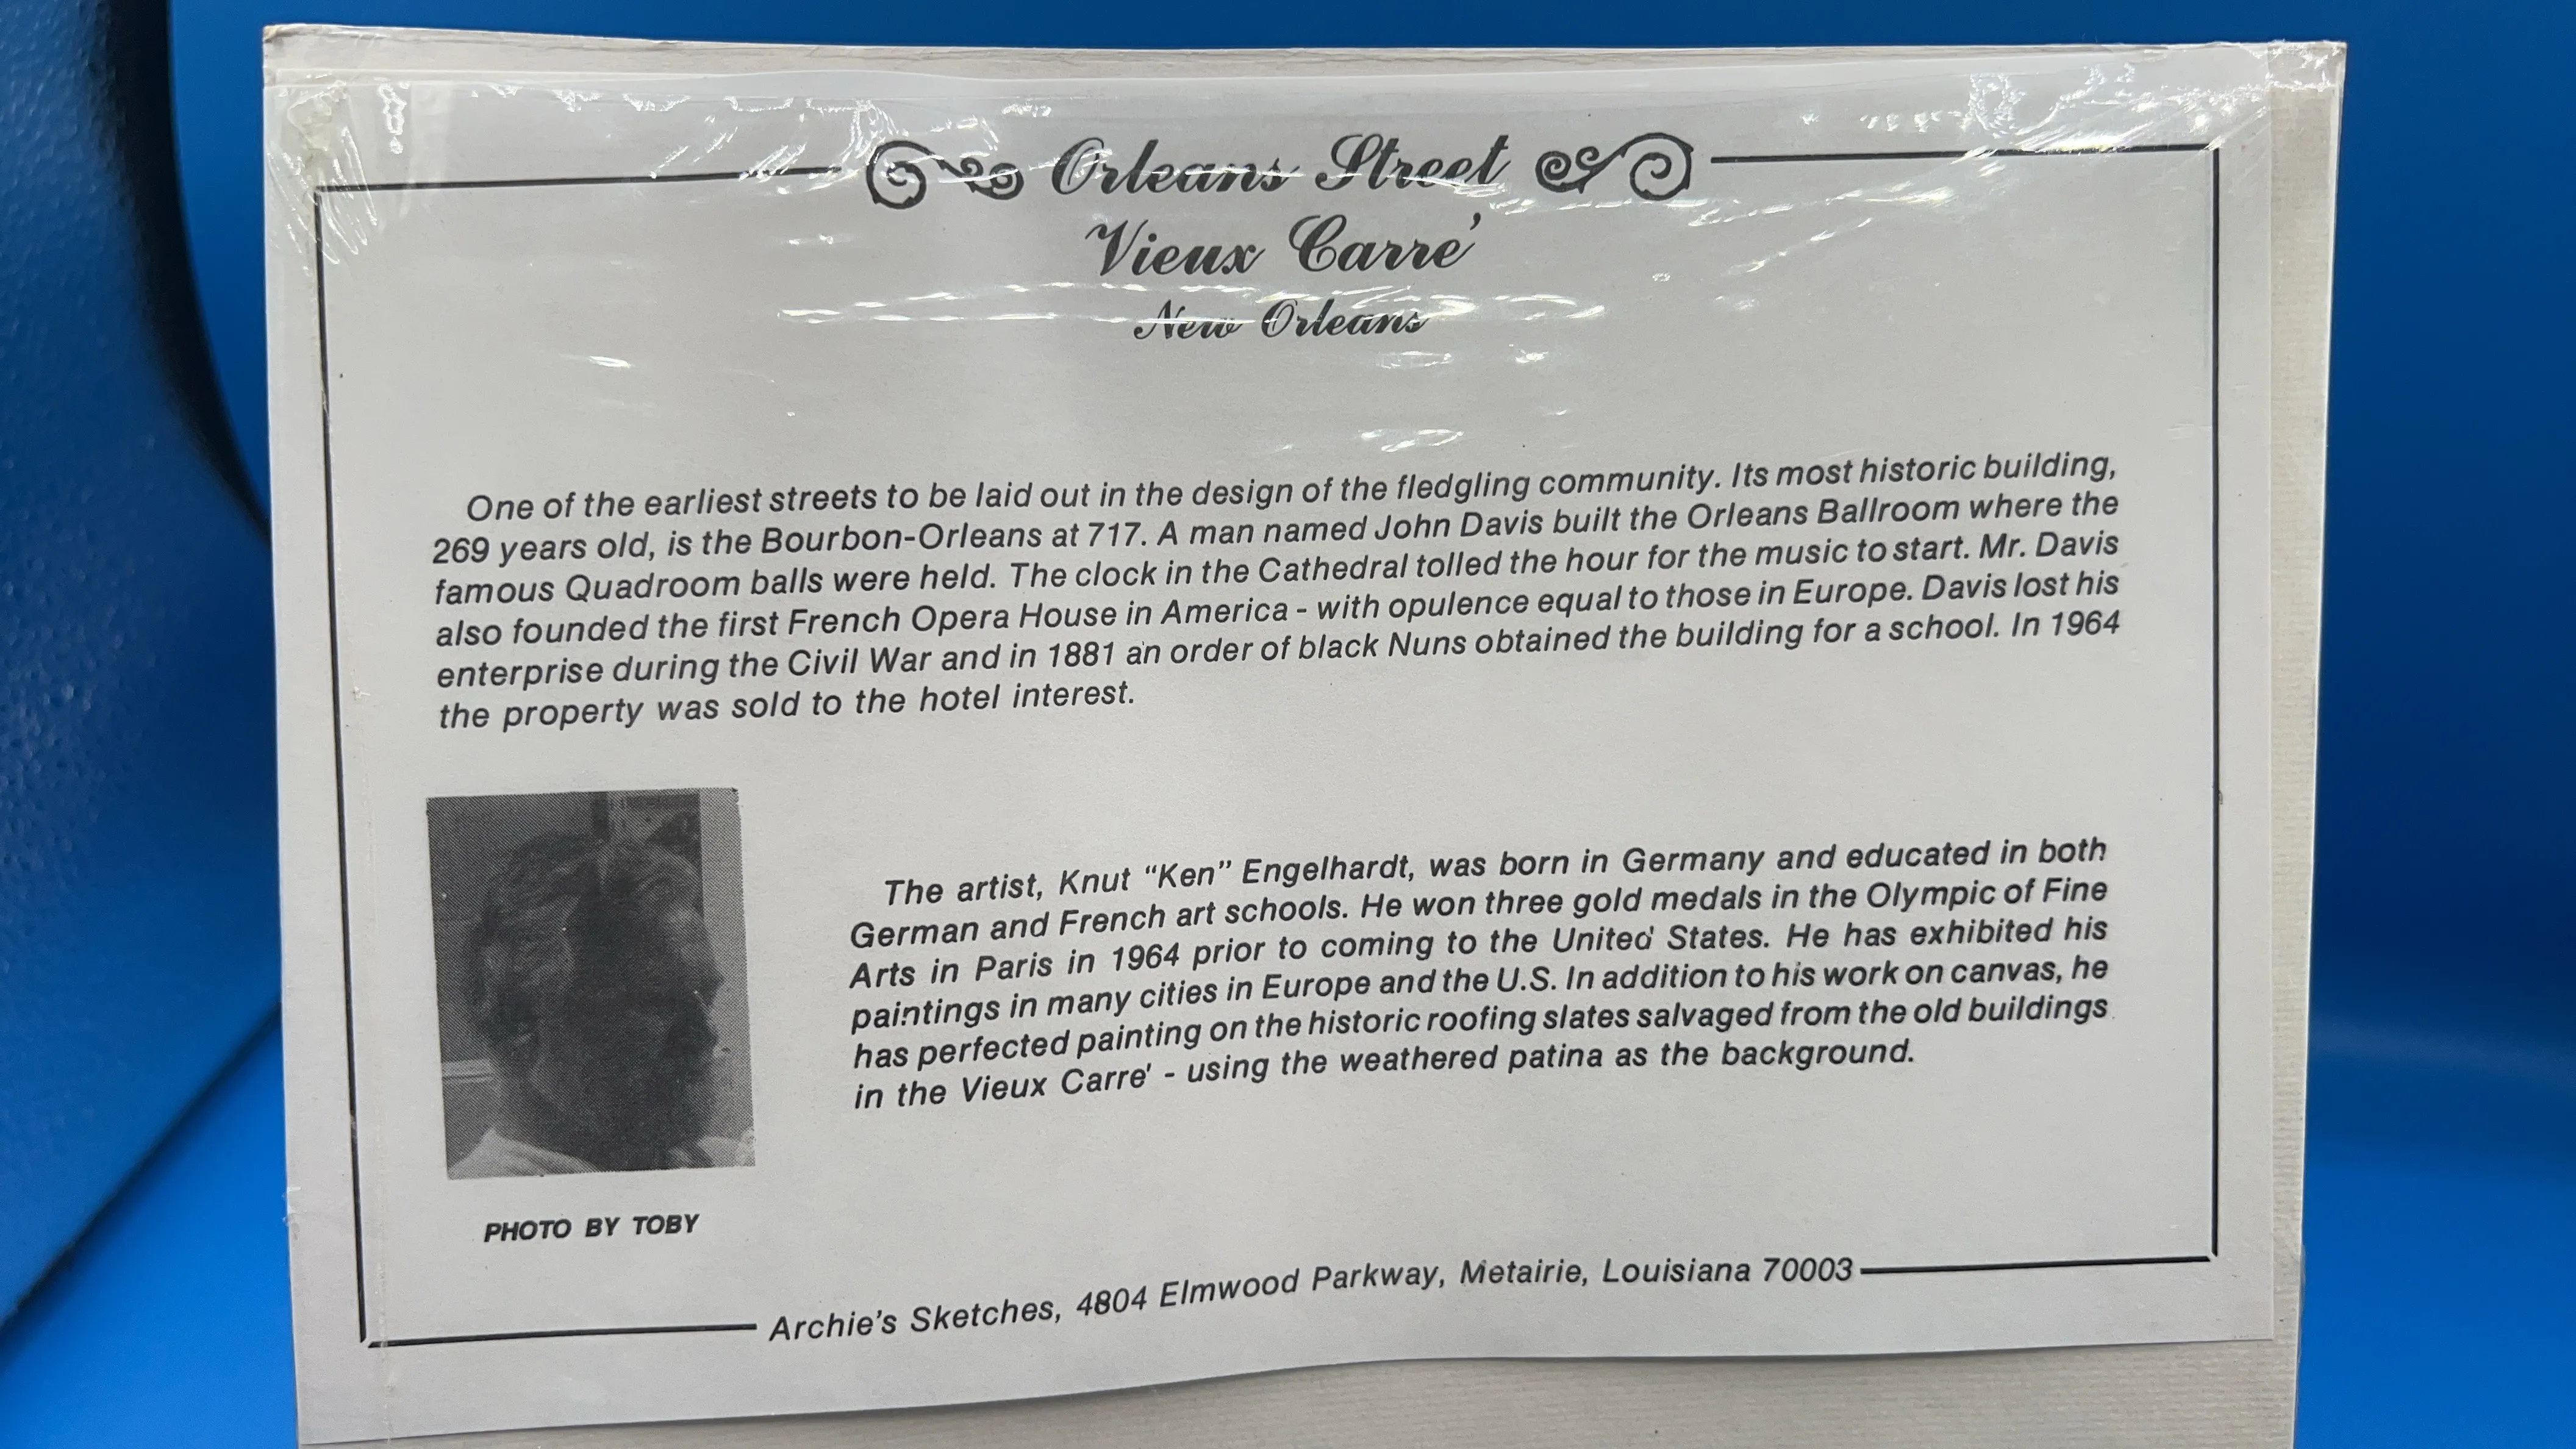 Orleans Street
Vieux Carre'
New Orleans
One of the earliest streets to be laid out in the design of the fledgling community. Its most historic building,
269 years old, is the Bourbon-Orleans at 717. A man named John Davis built the Orleans Ballroom where the
famous Quadroom balls were held. The clock in the Cathedral tolled the hour for the music to start. Mr. Davis
also founded the first French Opera House in America - with opulence equal to those in Europe. Davis lost his
enterprise during the Civil War and in 1881 an order of black Nuns obtained the building for a school. In 1964
the property was sold to the hotel interest.
The artist, Knut “Ken” Engelhardt, was born in Germany and educated in both
German and French art schools. He won three gold medals in the Olympic of Fine
Arts in Paris in 1964 prior to coming to the United States. He has exhibited his
paintings in many cities in Europe and the U.S. In addition to his work on canvas, he
has perfected painting on the historic roofing slates salvaged from the old buildings
in the Vieux Carre' - using the weathered patina as the background.
PHOTO BY TOBY
Archie's Sketches, 4804 Elmwood Parkway, Metairie, Louisiana 70003